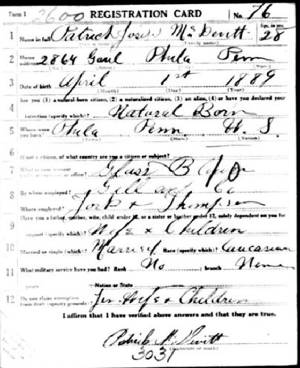 Form 1 2600 REGISTRATION CARD No. 76
1 Name in full Patrick Joseph McDevitt Age, in yrs. 28
2 Home address 2864 Gaul Phila Penn
3 Date of birth April 1st 1889
4 Are you (1) a natural-born citizen, (2) a naturalized citizen, (3) an alien, (4) or have you declared your
intention (specify which)? Natural Born
5 Where were you born? Phila Penn. U.S.
6 If not a citizen, of what country are you a citizen or subject?
7 Glass Blower
8 By whom employed? Gill and Co
Where employed? York & Thompson
9 Have you a father, mother, wife, child under 12, or a sister or brother under 12, solely dependent on you for
support (specify which)? Wife & Children
10 Married or single (which)? Married Race (specify which)? Caucasian
11 What military service have you had? Rank No branch None
12 Do you claim exemption from draft (specify grounds)? Yes Wife & Children
I affirm that I have verified above answers and that they are true.
Patrick McDevitt
3031